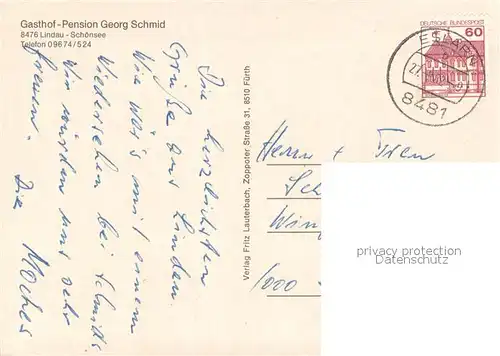 Gasthof-Pension Georg Schmid
8476 Lindau - Schönsee
Telefon 09674/524
Die herzlichsten
Grüße aus Lindau.
Wie wär's mit einem
Wiedersehen bei Schmids
Wir würden uns sehr
freuen. Die
Verlag Fritz Lauterbach, Zoppoter Straße 31, 8510 Fürth
DEUTSCHE BUNDESPOST
60
ESLARN
8481
Herrn + Frau
1000
privacy protection
Datenschutz